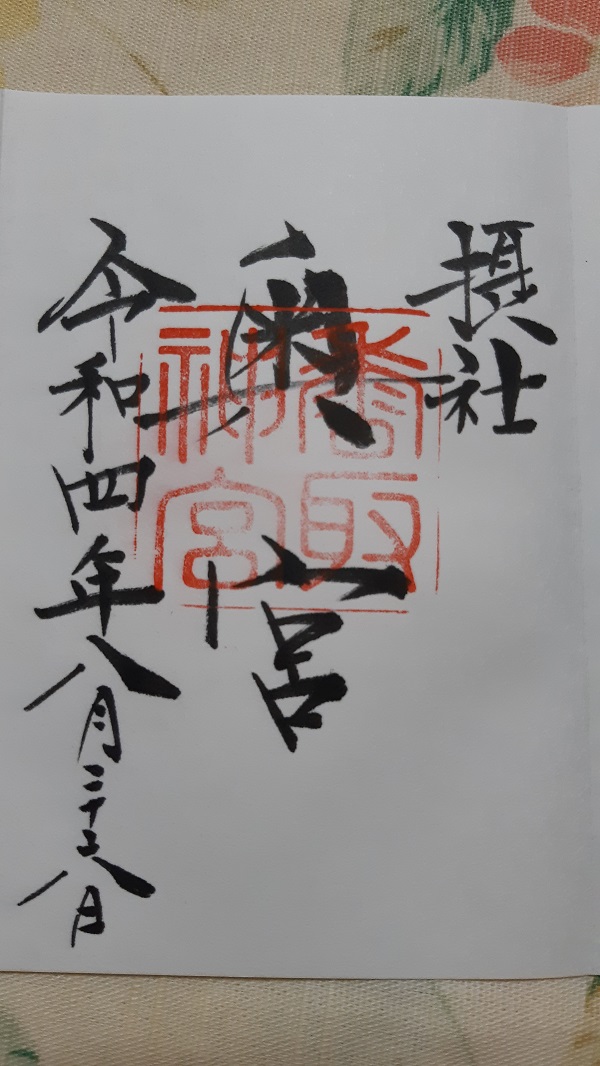 摂社
奥宮
香取
神宮
令和四年八月二十六日